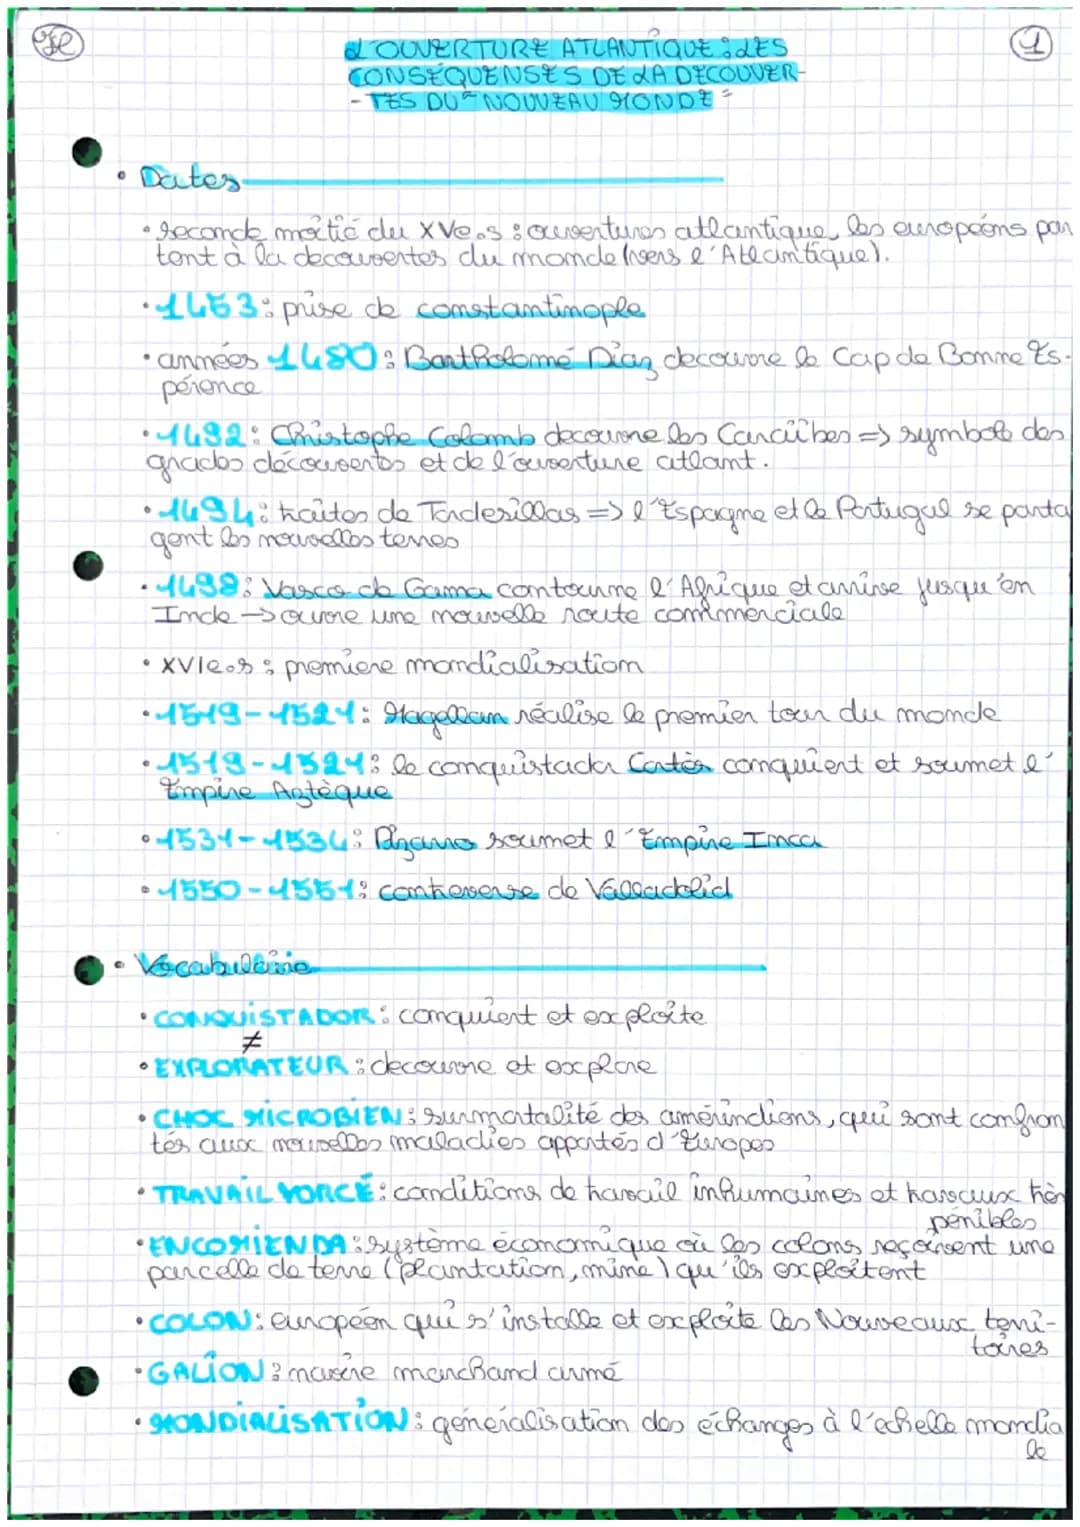 1
L'OUVERTURE ATLANTIQUE : LES
CONSÉQUENSES DE LA DECOUVER-
-TES DU "NOUVEAU MONDE"
• Dates
• seconde moitié du XVe.s : ouvertures atlantique, les européens par
tent à la decouvertes du monde (vers l'Atlantique).
• 1453 : prise de constantinople
• années 1480 : Bartholomé Diaz decouvre le Cap de Bonne Es-
pérence
• 1492 : Christophe Colomb decouvre les Caraïbes => symbole des
grades découvertes et de l'ouverture atlant.
• 1494 : traites de Tordesillas => l'Espagne et le Portugal se parta
gent les nouvelles terres
• 1498 : Vasco de Gama contourne l'Afrique et arrive jusqu'en
Inde -> ouvre une nouvelle route commerciale
• XVIe.s : premiere mondialisation
• 1519-1521 : Magellan réalise le premier tour du monde
• 1519-1521 : le conquistador Cortès conquiert et soumet l'
Empire Aztèque
• 1531-1534 : Pizarro soumet l'Empire Inca
• 1550-1551 : controverse de Valladolid
• Vocabulaire
• CONQUISTADOR : conquiert et exploite
≠
• EXPLORATEUR : decouvre et explore
• CHOC MICROBIEN : surmortalité des amérindiens, qui sont confron
tés aux nouvelles maladies apportés d'Europes
• TRAVAIL FORCÉ : conditions de travail inhumaines et travaux très
pénibles
• ENCOMIENDA : système économique où les colons reçoivent une
parcelle de terre (plantation, mine) qu'ils exploitent
• COLON : européen qui s'installe et exploite les Nouveaux terri-
toires
• GALION : navire marchand armé
• MONDIALISATION : généralisation des échanges à l'echelle mondia
le